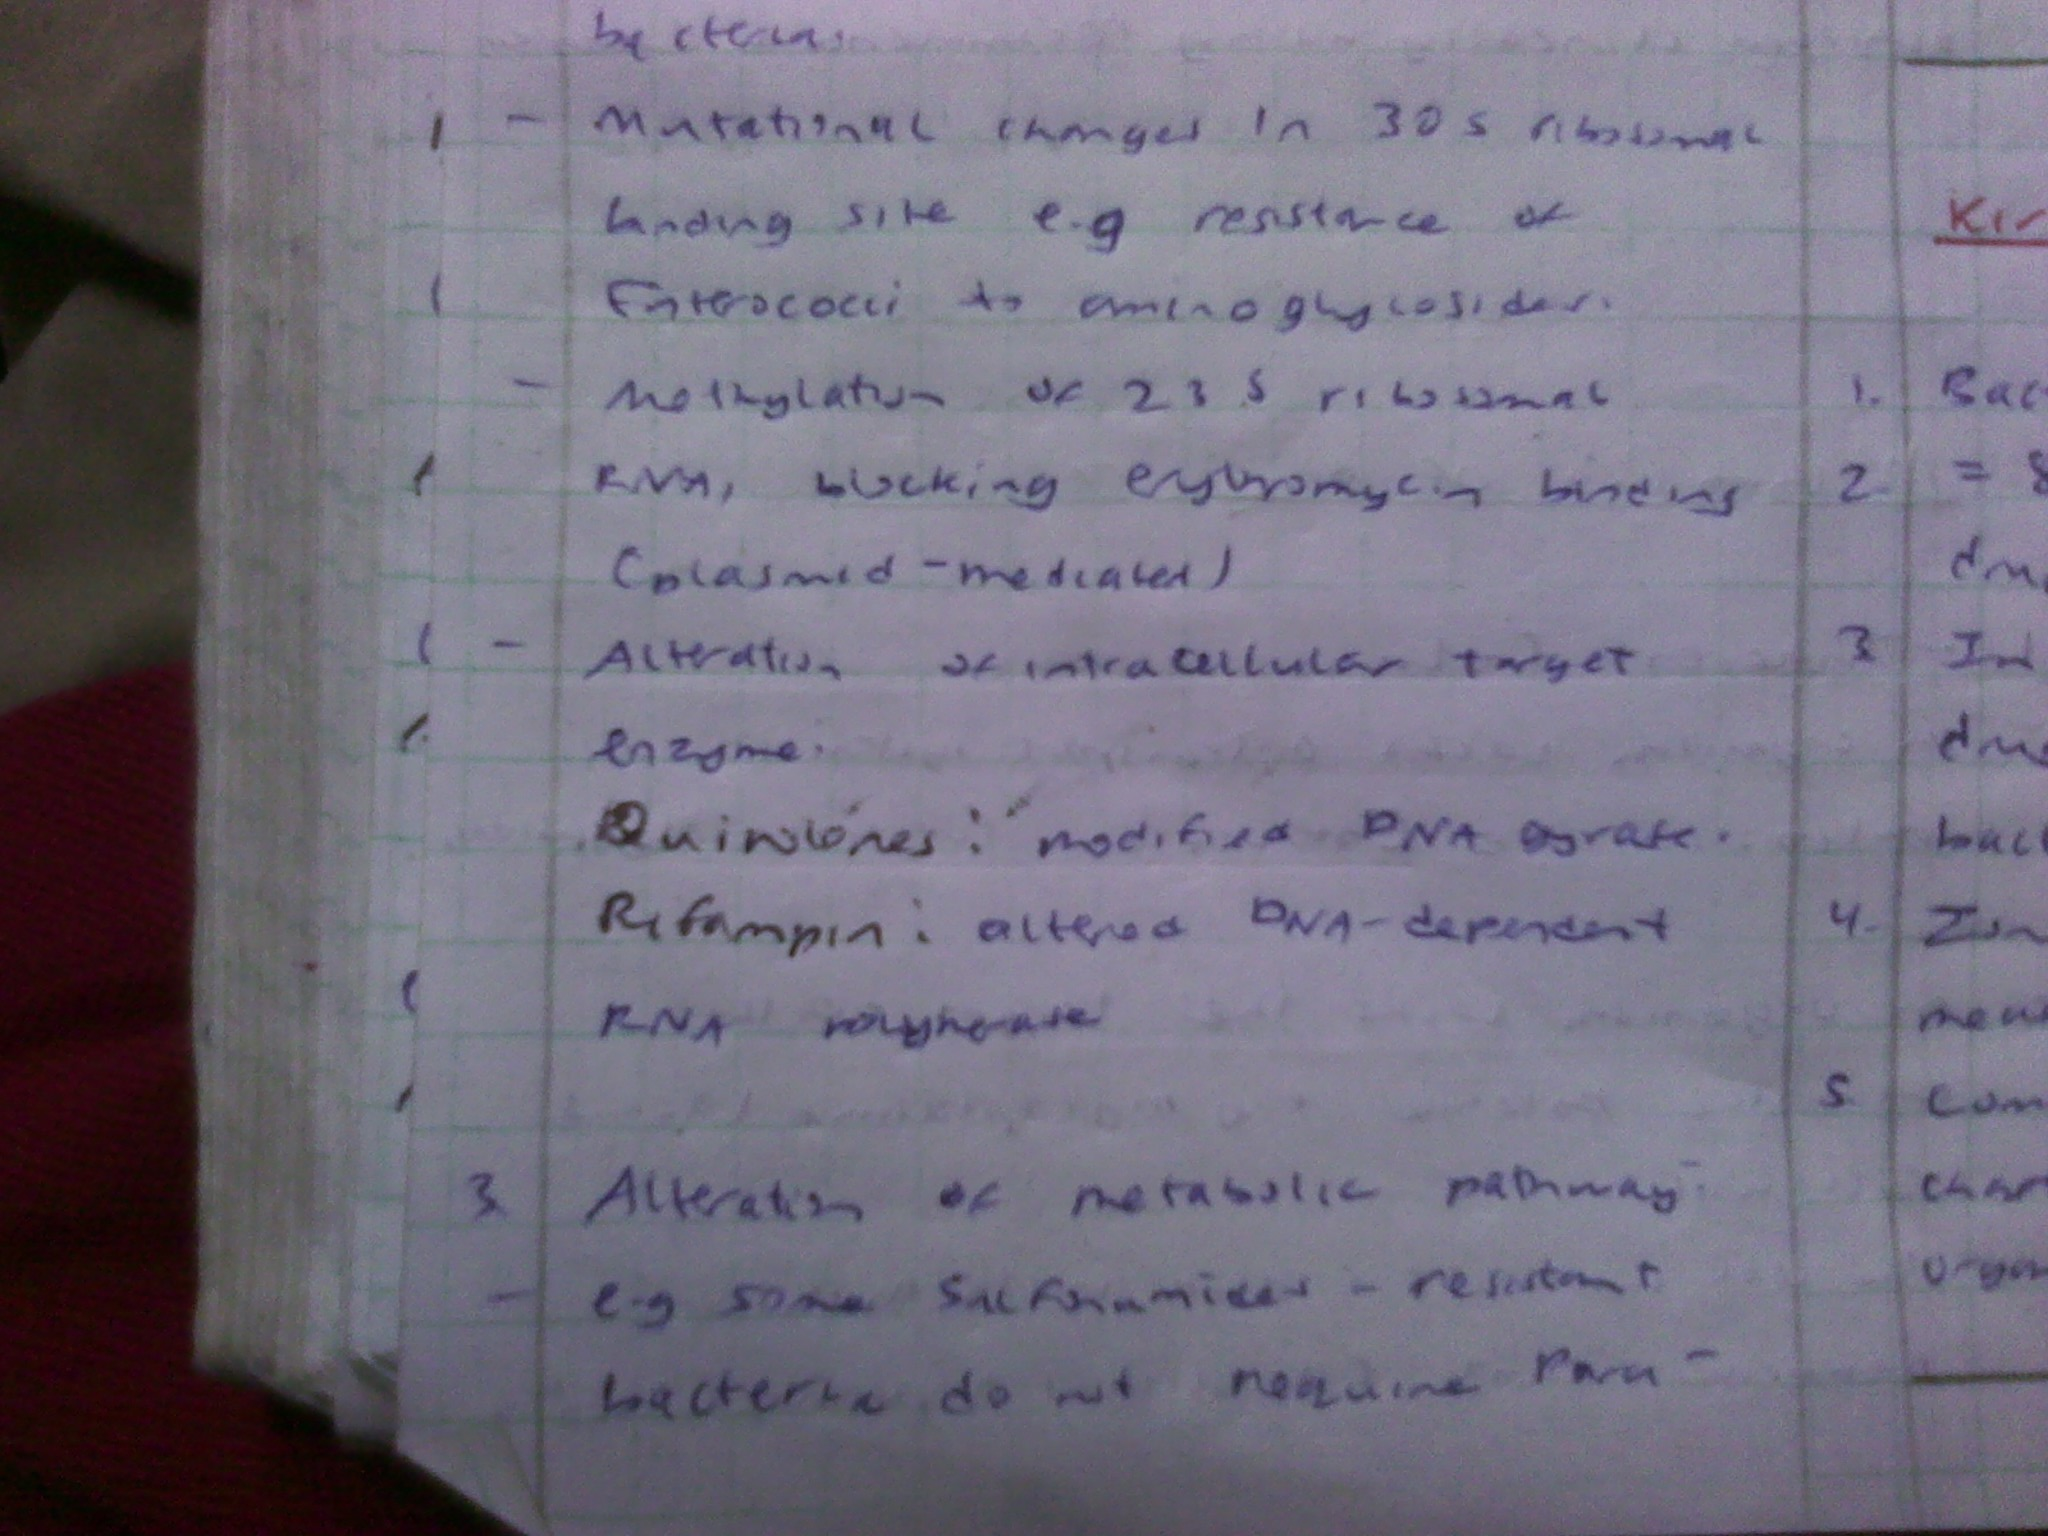 bacterias
- Mutational changes in 30s ribosomal
binding site e.g resistance of
Enterococci to aminoglycosides.
- Methylation of 23S ribosomal
RNA, blocking erythromycin binding
(plasmid-mediated)
- Alteration of intracellular target
enzyme.
Quinolones: modified DNA gyrase.
Rifampin: altered DNA-dependent
RNA polymerase
3. Alteration of metabolic pathway-
- e.g some Sulfonamides - resistant
bacteria do not require Para-
Kir
1. Bac
2. =
3. In
4. Zon
5. Com
char
organ